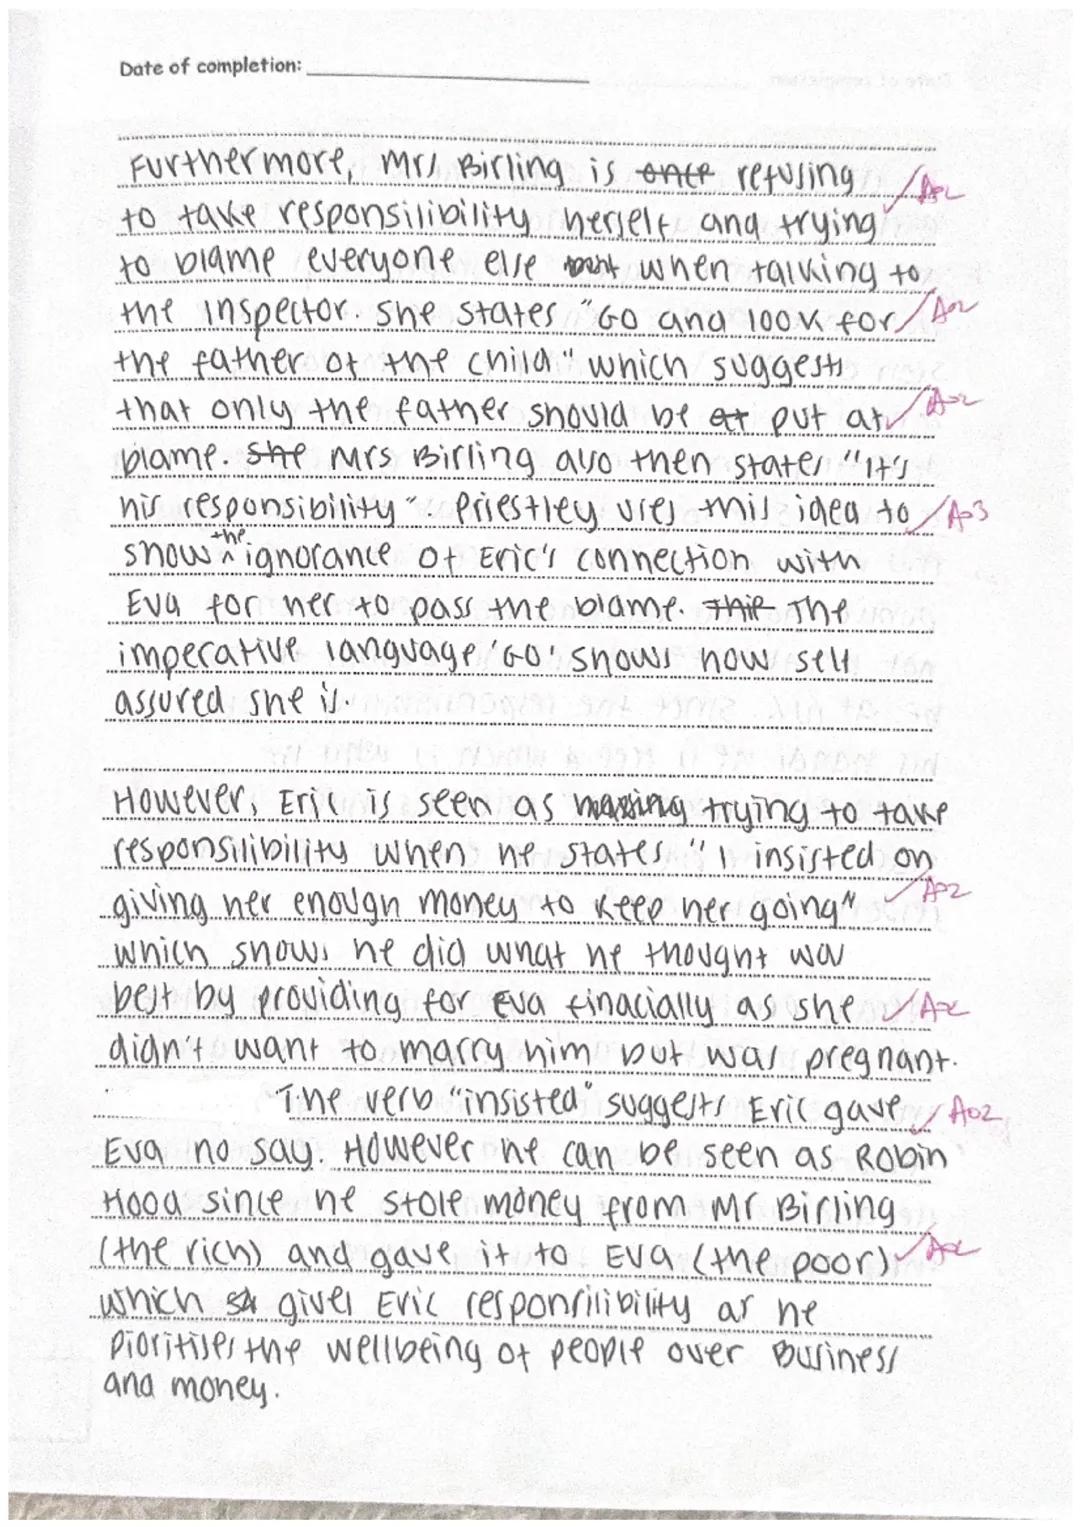 Date of completion:
Furthermore, Mrs Birling is once refusing
to take responsilibility herself and trying
to blame everyone else when talking to
the inspector. She states "Go and look for
the father of the child" which suggests
that only the father should be at put at
blame. She Mrs Birling also then states "It's
his responsibility" Priestley uses this idea to
show the ignorance of Eric's connection with
Eva for her to pass the blame. This The
imperative language 'Go' shows how self
assured she is.
However, Eric is seen as trying to take
responsilibility when he states "I insisted on
giving her enough money to keep her going"
which shows he did what he thought was
best by providing for Eva finacially as she
didn't want to marry him but was pregnant.
The verb "insisted" suggests Eric gave
Eva no say. However he can be seen as Robin
Hood since he stole money from Mr Birling
(the rich) and gave it to Eva (the poor)
which gives Eric responsilibility as he
pioritises the wellbeing of people over Business
and money.
AO2
AO2
AO2
AO3
AO2
AO2
AO2
AO2